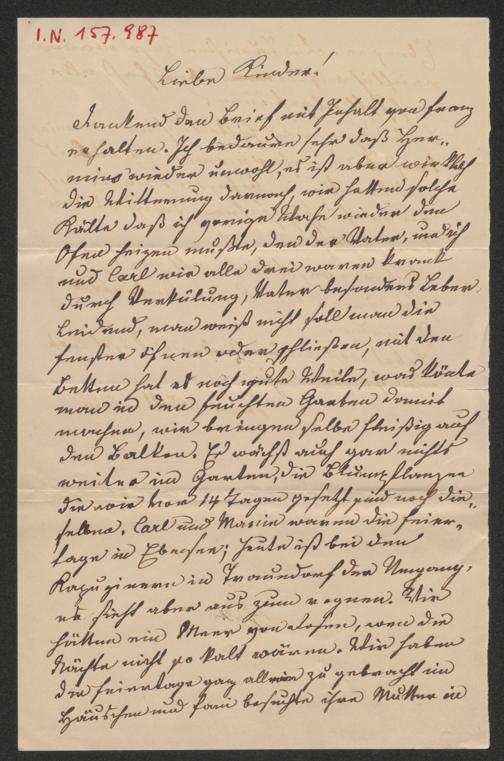 I.N. 157.987
Liebe Kinder!
Dankend den Brief mit Inhalt von Franz
erhalten. Ich bedaure sehr daß Her-
mine wieder unwohl, es ist aber
die Witterung darnach, wir hatten solche
Kälte daß ich vorige Woche wieder den
Ofen heizen mußte, den der Vater, und ich
und Carl wir alle drei waren krank
durch Verkülung, Vater besonders Leber
leidend, man weiß nicht soll man die
Fenster öfnen oder schließen, mit den
Betten hat es noch gute Weile, was könte
man in den feuchten Graben damit
machen, wir bringen selbe fleißig auf
den Balkon. Es wächst auch gar nichts
weiter im Garten, die Blumpflanzen
die wir vor 14 Tagen gesetzt sind noch die-
selben. Carl und Marie waren die Feier-
tage in Ebensee; heute ist bei den
Kapuzinern in Traundorf der Umgang,
es sieht aber aus zum regnen. Wir
hätten ein Meer von Rosen, wen die
Nächte nicht so kalt wären. Wir haben
die Feiertage ganz allein zu gebracht im
Häuschen und Fani besuchte ihre Mutter in